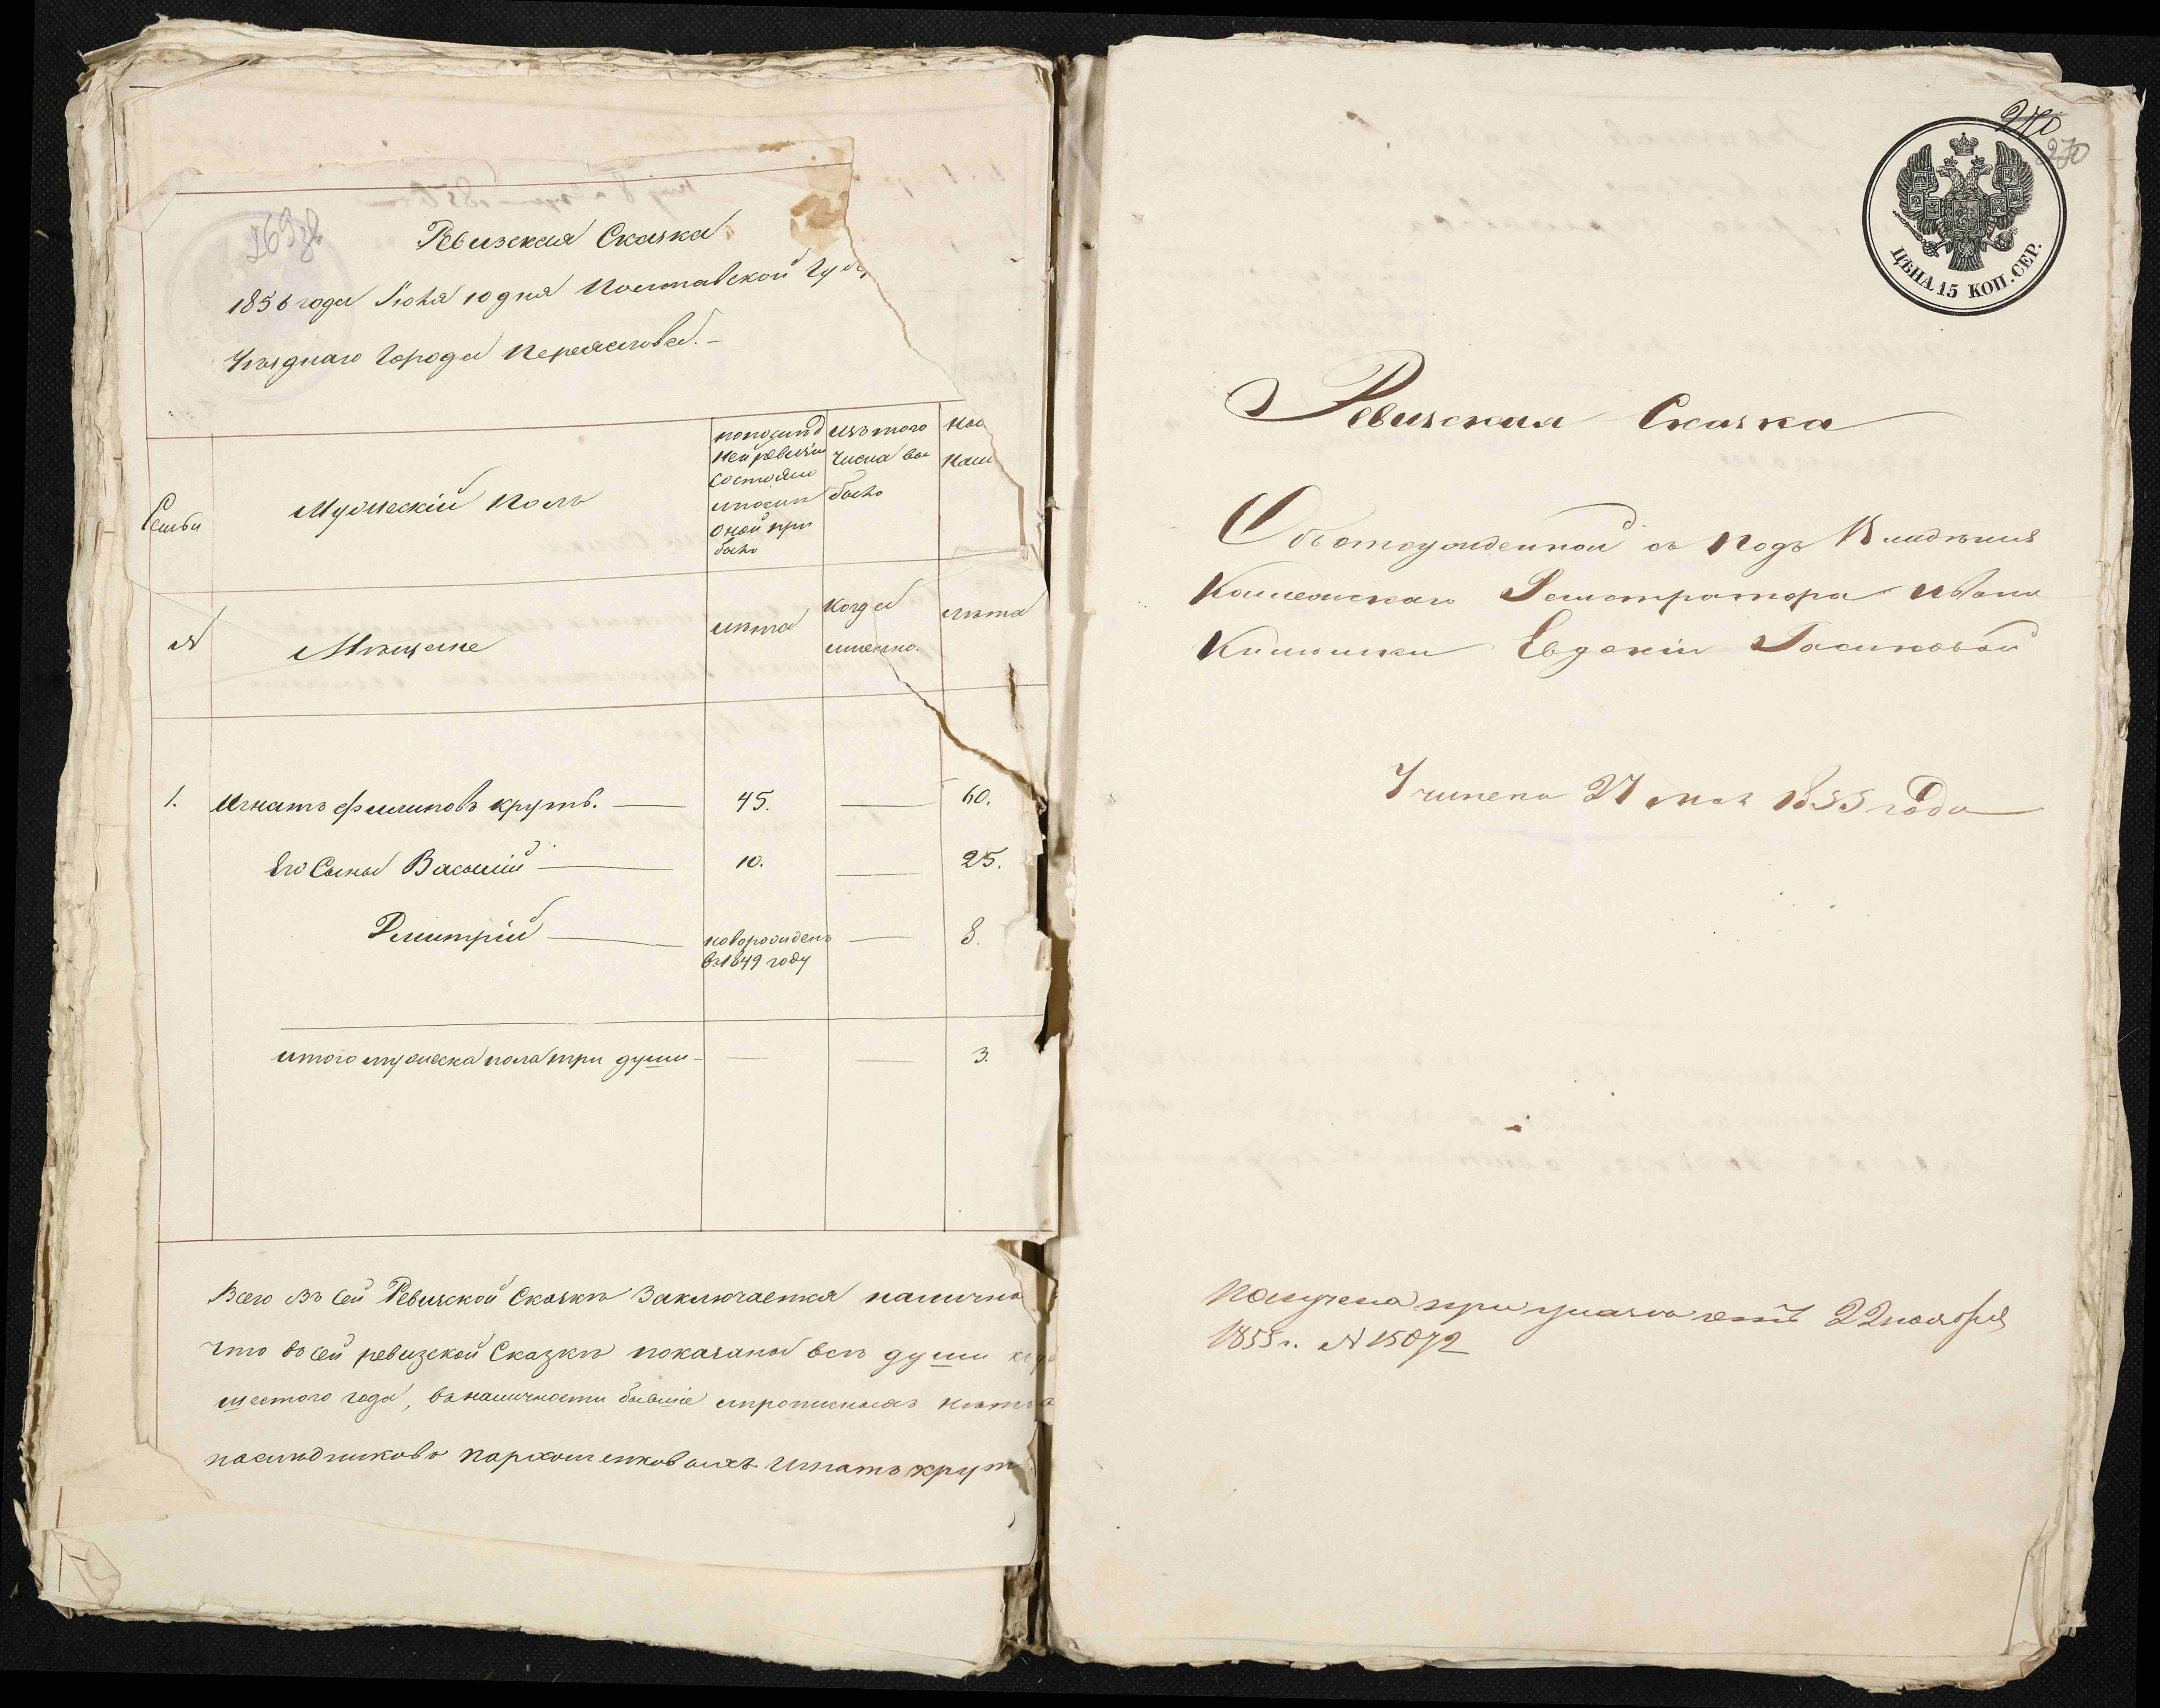 269 зв
Ревизская Сказка
1856 года Іюня 10 дня Полтавской Губ
Уезднаго Города Переяслова.
Семьи
Мужескій Полъ
по последней ревизіи состояло и после оной прибыло
изъ того числа выбыло
Ны
нали
№
Мѣщане
лѣта
когда именно.
лѣта
1. Игнатъ Филиповъ Круть. 45. 60.
Его Сыны Василій 10. 25.
Дмитрій новорожденъ въ 1849 году 8.
итого мужеска пола три души 3.
Всего въ сей Ревизской Сказкѣ Заключается налично
что въ сей ревизской Сказкѣ показаны всѣ души
шестого года, въ наличности бывшіе и прописныхъ нѣтъ
наследниковъ Пархоменковыхъ Игнатъ Круть
270
270
ЦѢНА 15 КОП. СЕР.
Ревизская Сказка
Объ отсужденной съ подъ Владѣнія
Коллежскаго Регистратора Ивана
Евдокіи
Учинена 27 мая 1855 года
Получена при 22 ноября
1855 г. № 15072